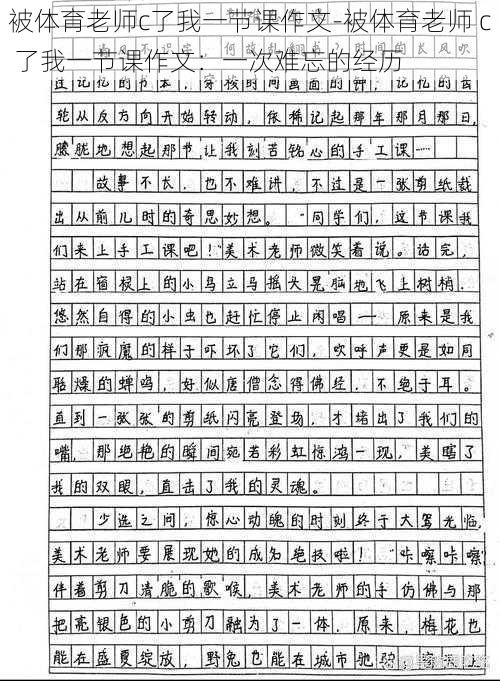 被体育老师c了我一节课作文-被体育老师 c
了我一节课作文：一次难忘的经历
过记忆的书本，穿梭时间画面的钟，记忆的齿
轮从反方向开始转动，依稀记起那年那月那日，
朦胧地想起那节让我刻苦铭心的手工课……
故事不长，也不难讲，不过是一张剪纸裁
出从前儿时的奇思妙想。“同学们，这节课我
们来上手工课吧！”美术老师微笑着说。话完，
站在窗棂上的小鸟立马摇头晃脑地飞上树梢，
悠然自得的小虫也赶忙停止闲唱——原来是我
们那疯魔的样子吓坏了它们，欢呼声更是如同
聒燥的蝉鸣，好似唐僧念得佛经，不绝于耳。
直到一张张的剪纸闪亮登场，才堵出了我们的
嘴，那绝艳的瞬间宛若彩虹惊鸿一现，美瞎了
我的双眼，直击了我的灵魂。
少选之间，惊心动魄的时刻终于大驾光临，
美术老师要展现她的成名绝技啦！“咔嚓咔嚓”
伴着剪刀清脆的歌喉，美术老师的手仿佛与那
把亮银色的小剪刀融为了一体，原来，梅花也
能在盛夏绽放，野兔也能在城市驰